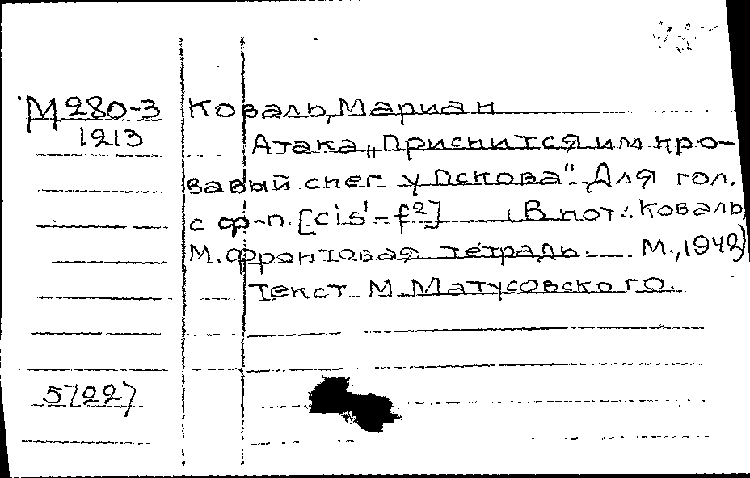 М280-3 Коваль, Мариан
1213 Атака „Приснится им кро-
вавый снег у Пскова". Для гол.
с ф-п. [cis'-f²] (В нот.: Коваль
М. Фронтовая тетрадь. М., 1942)
Текст М. Матусовского.
57227